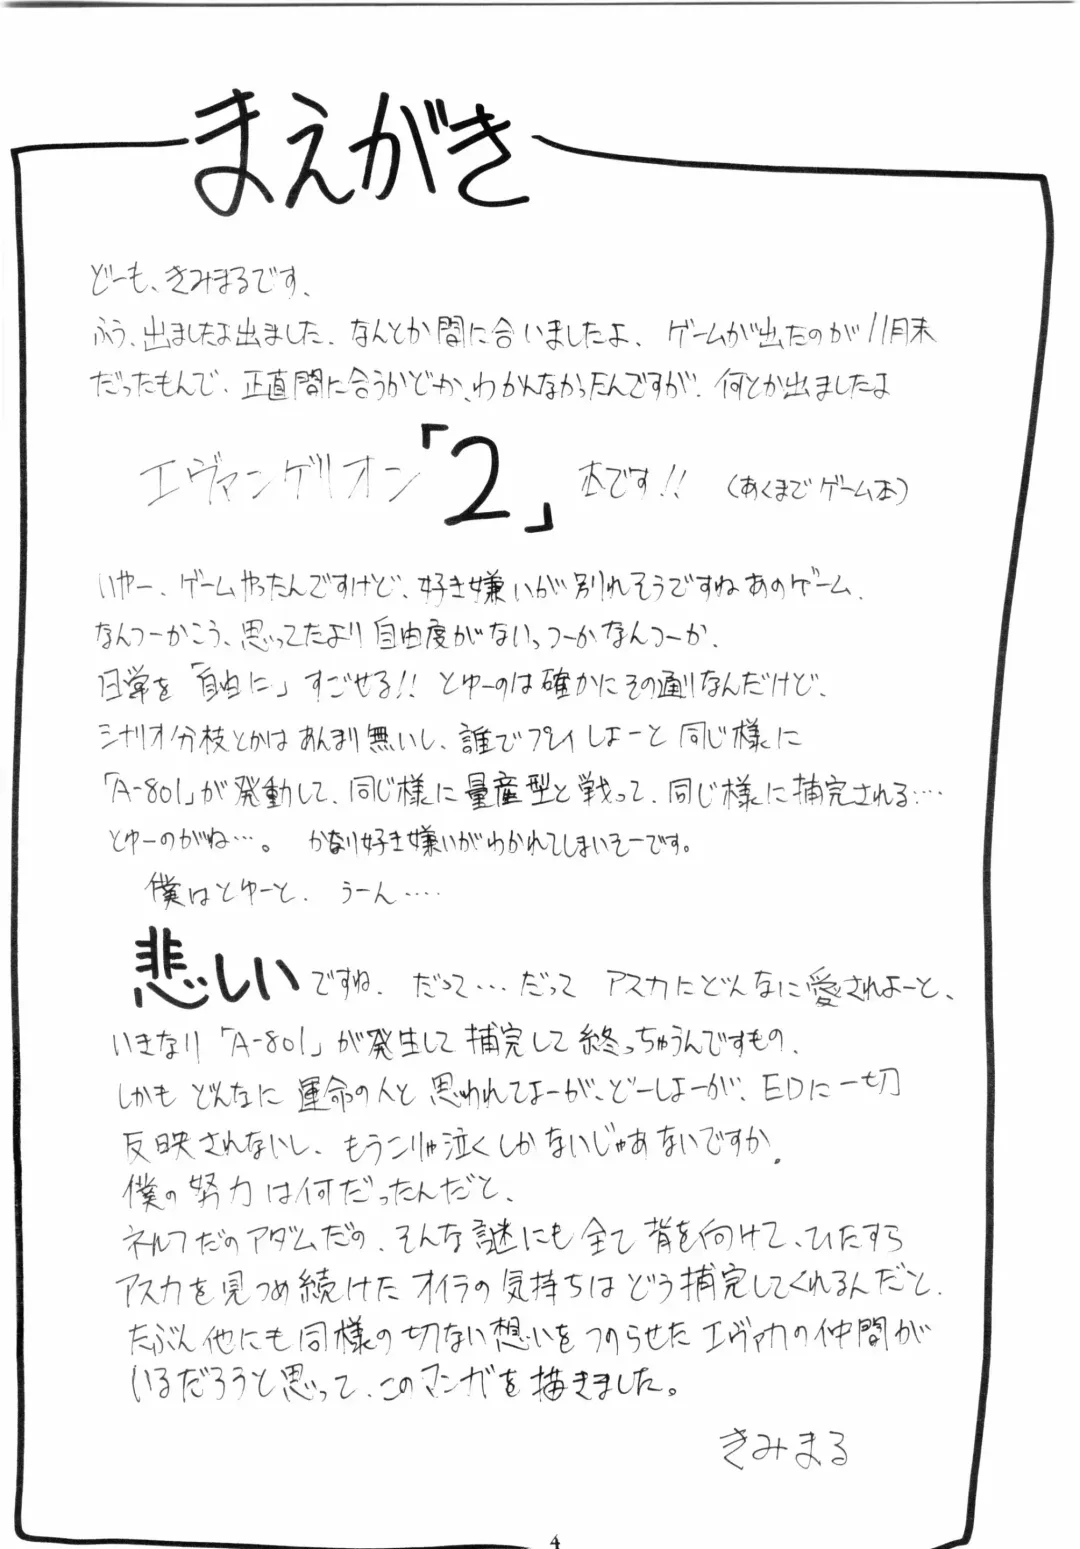 まえがき
どーも、きみまるです、
ふう、出ましたよ出ました、なんとか間に合いましたよ、ゲームが出たのが11月末
だったもんで、正直間に合うかどか、わかんなかったんですが、何とか出ましたよ
エヴァンゲリオン「2」本です!! (あくまでゲーム本)
いやー、ゲームやったんですけど、好き嫌いが別れそうですねあのゲーム、
なんつーかこう、思ってたより自由度がないっつーかなんつーか、
日常を「自由に」すごせる!! とゆーのは確かにその通りなんだけど、
シナリオ分枝とかはあんまり無いし、誰でプレイしよーと同じ様に
「A-801」が発動して、同じ様に量産型と戦って、同じ様に補完される…
とゆーのがね…。 かなり好き嫌いがわかれてしまいそーです。
僕はとゆーと、うーん……
悲しいですね、だって…だってアスカにどんなに愛されよーと、
いきなり「A-801」が発生して補完して終っちゃうんですもの、
しかもどんなに運命の人と思われてよーが、どーしよーが、EDに一切
反映されないし、もうこりゃ泣くしかないじゃあないですか、
僕の努力は何だったんだと、
ネルフだのアダムだの、そんな謎にも全て背を向けて、ひたすら
アスカを見つめ続けたオイラの気持ちはどう補完してくれるんだと、
たぶん他にも同様の切ない想いをつのらせたエヴァカの仲間が
いるだろうと思って、このマンガを描きました。
きみまる
4